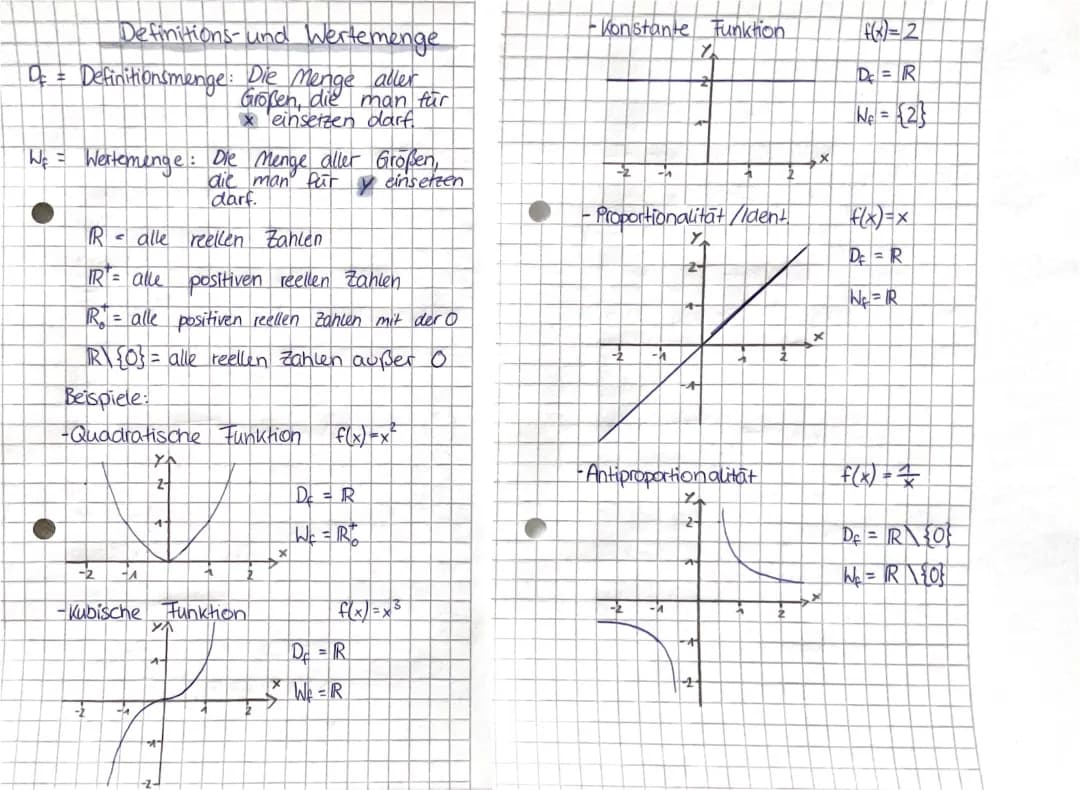 Definitions- und Wertemenge
Df = Definitionsmenge: Die Menge aller
Größen, die man für
x einsetzen darf.
Wf = Wertemenge: Die Menge aller Größen,
die man für y einsetzen
darf.
ℝ = alle reellen Zahlen
ℝ⁺ = alle positiven reellen Zahlen
ℝ₀⁺ = alle positiven reellen Zahlen mit der 0
ℝ\{0} = alle reellen Zahlen außer 0
Beispiele:
-Quadratische Funktion f(x)=x²
y
2
1
Df = ℝ
Wf = ℝ₀⁺
x
-2 -1 1 2
-Kubische Funktion f(x)=x³
y
1
Df = ℝ
x
Wf = ℝ
-2 -1 1 2
-1
-2
- Konstante Funktion f(x)=2
y
2
Df = ℝ
1
Wf = {2}
x
-2 -1 1 2
- Proportionalität /Ident. f(x)=x
y
2
Df = ℝ
1
Wf = ℝ
x
-2 -1 1 2
-1
-Antiproportionalität f(x) = 1/x
y
2
Df = ℝ\{0}
1
Wf = ℝ\{0}
x
-2 -1 1 2
-1
-2